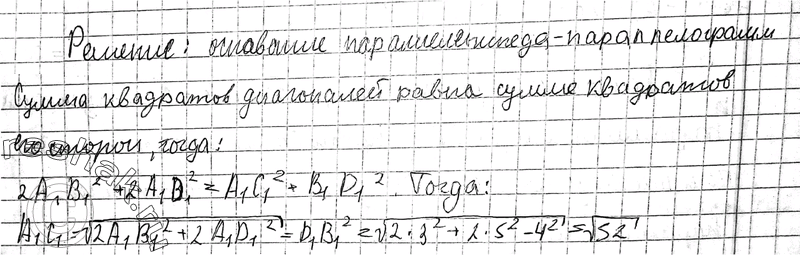 Решение: основание параллелепипеда-параллелограмм
Сумма квадратов диагоналей равна сумме квадратов
его сторон, тогда:
2A₁B₁² + 2A₁D₁² = A₁C₁² + B₁D₁². Тогда:
A₁C₁ = √2A₁B₁² + 2A₁D₁² = D₁B₁² = √2·3² + 2·5² - 4² = √52